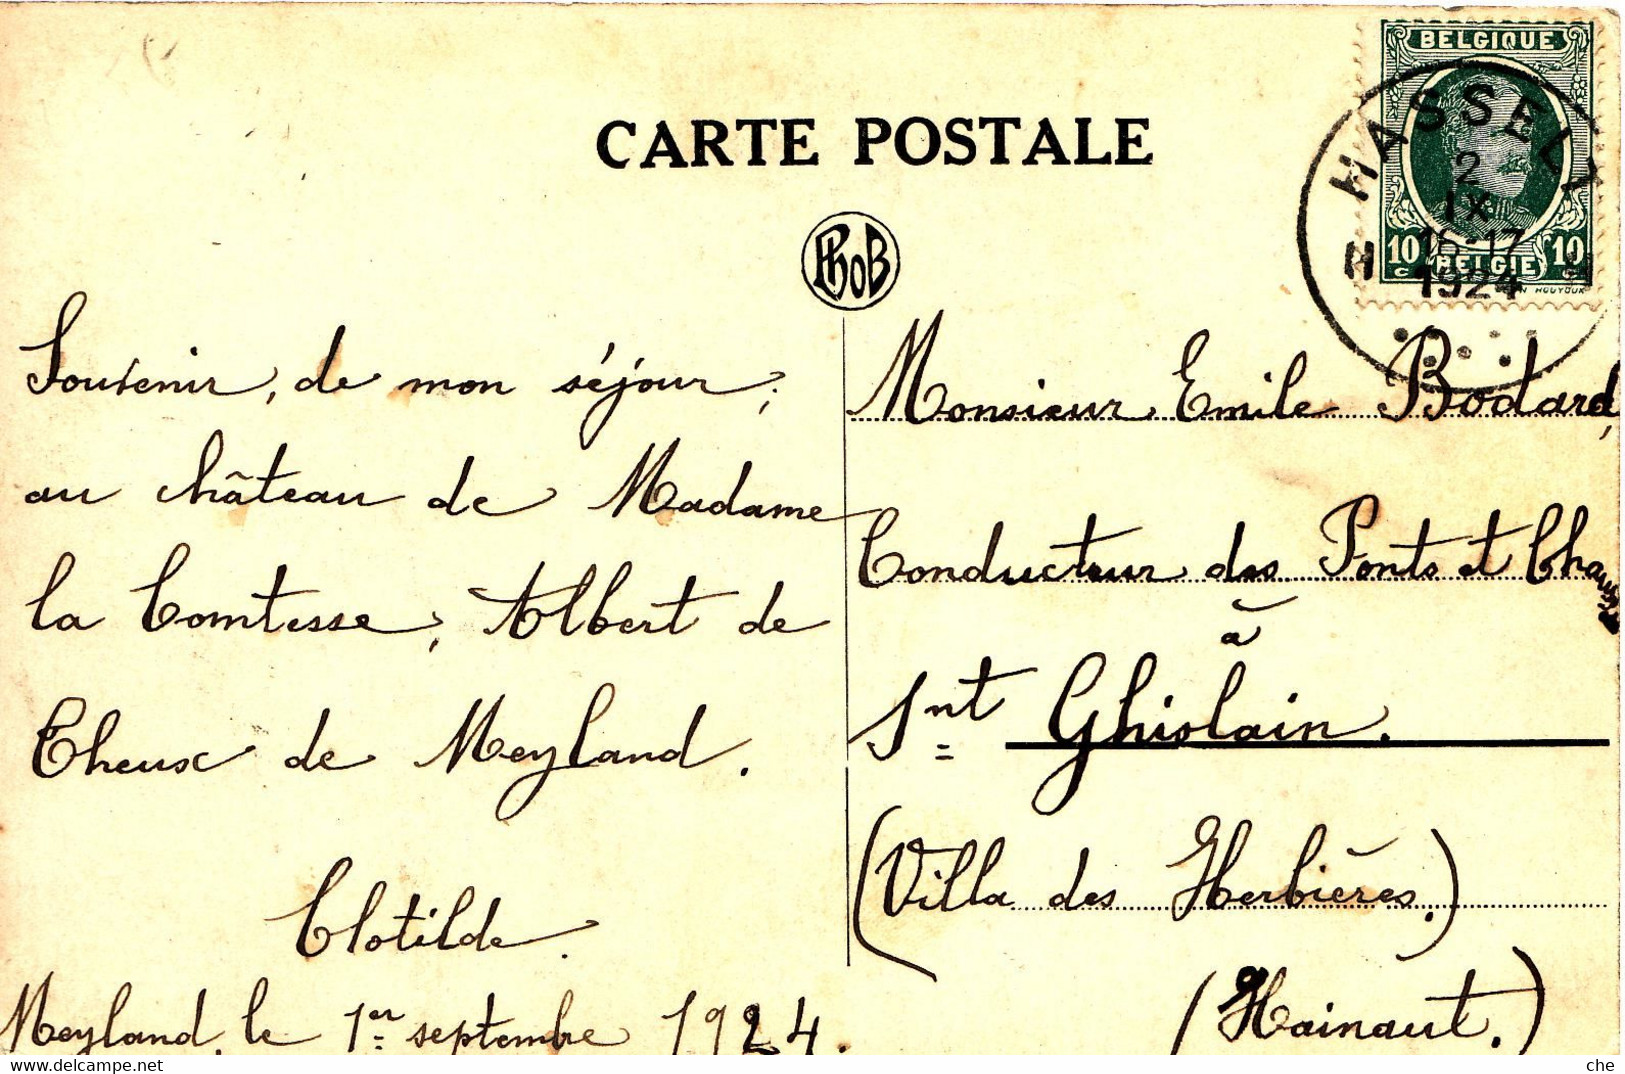 CARTE POSTALE
BELGIQUE
HASSELT
2
IX
16-17
1924
H
10 c
10 c
BELGIË
PhoB
Souvenir, de mon séjour,
au château de Madame
la Comtesse, Albert de
Theux de Meyland.
Clotilde.
Meyland, le 1er septembre 1924.
Monsieur Emile Bodard,
Conducteur des Ponts et Chaussées
à
Snt Ghislain.
(Villa des Herbières.)
(Hainaut.)
www.delcampe.net
che